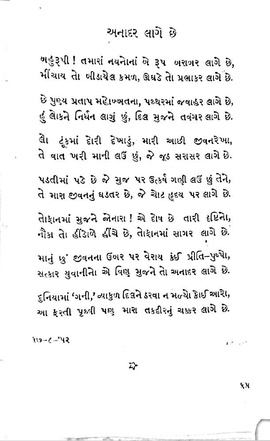 અનાદર લાગે છે
બહુરૂપી! તમારાં નયનોનાં બે રૂપ બરાબર લાગે છે,
મીંચાય તો બીડાયેલ કમળ, ઊઘડે તો પ્રભાકર લાગે છે.
છે પુણ્ય પ્રતાપ મહોબ્બતના, પથ્થરમાં જવાહર લાગે છે,
હું લોકને નિર્ધન લાગું છું, દિલ મુજને તવંગર લાગે છે.
લો ટૂંકમાં દોરી દેખાડું, મારી આછી જીવનરેખા,
તે વાત ખરી માની લઉં છું, જે જૂઠ સરાસર લાગે છે.
પડતીમાં પડે છે જે મુજ પર ઉત્કર્ષ ગણી લઉં છું તેને,
તે મારા જીવનનું ઘડતર છે, જે ચોટ હૃદય પર લાગે છે.
તોફાનમાં મુજને જોનારા! એ દોષ છે તારી દૃષ્ટિનો,
નૌકા તો હીંડોળે હીંચે છે, તોફાનમાં સાગર લાગે છે.
માનું છું જીવનના ઉંબર પર વેરાય કંઈ પ્રીતિ-પુષ્પો,
સત્કાર યુવાનીનો એ વિણ મુજને તો અનાદર લાગે છે.
દુનિયામાં ‘ગની,’ વ્યાકુળ દિલને ઠરવા ન મળ્યો કોઈ આરો,
આ ફરતી પૃથ્વી પણ મારા તકદીરનું ચક્કર લાગે છે.
૨૭-૮-'૫૨
૬૫